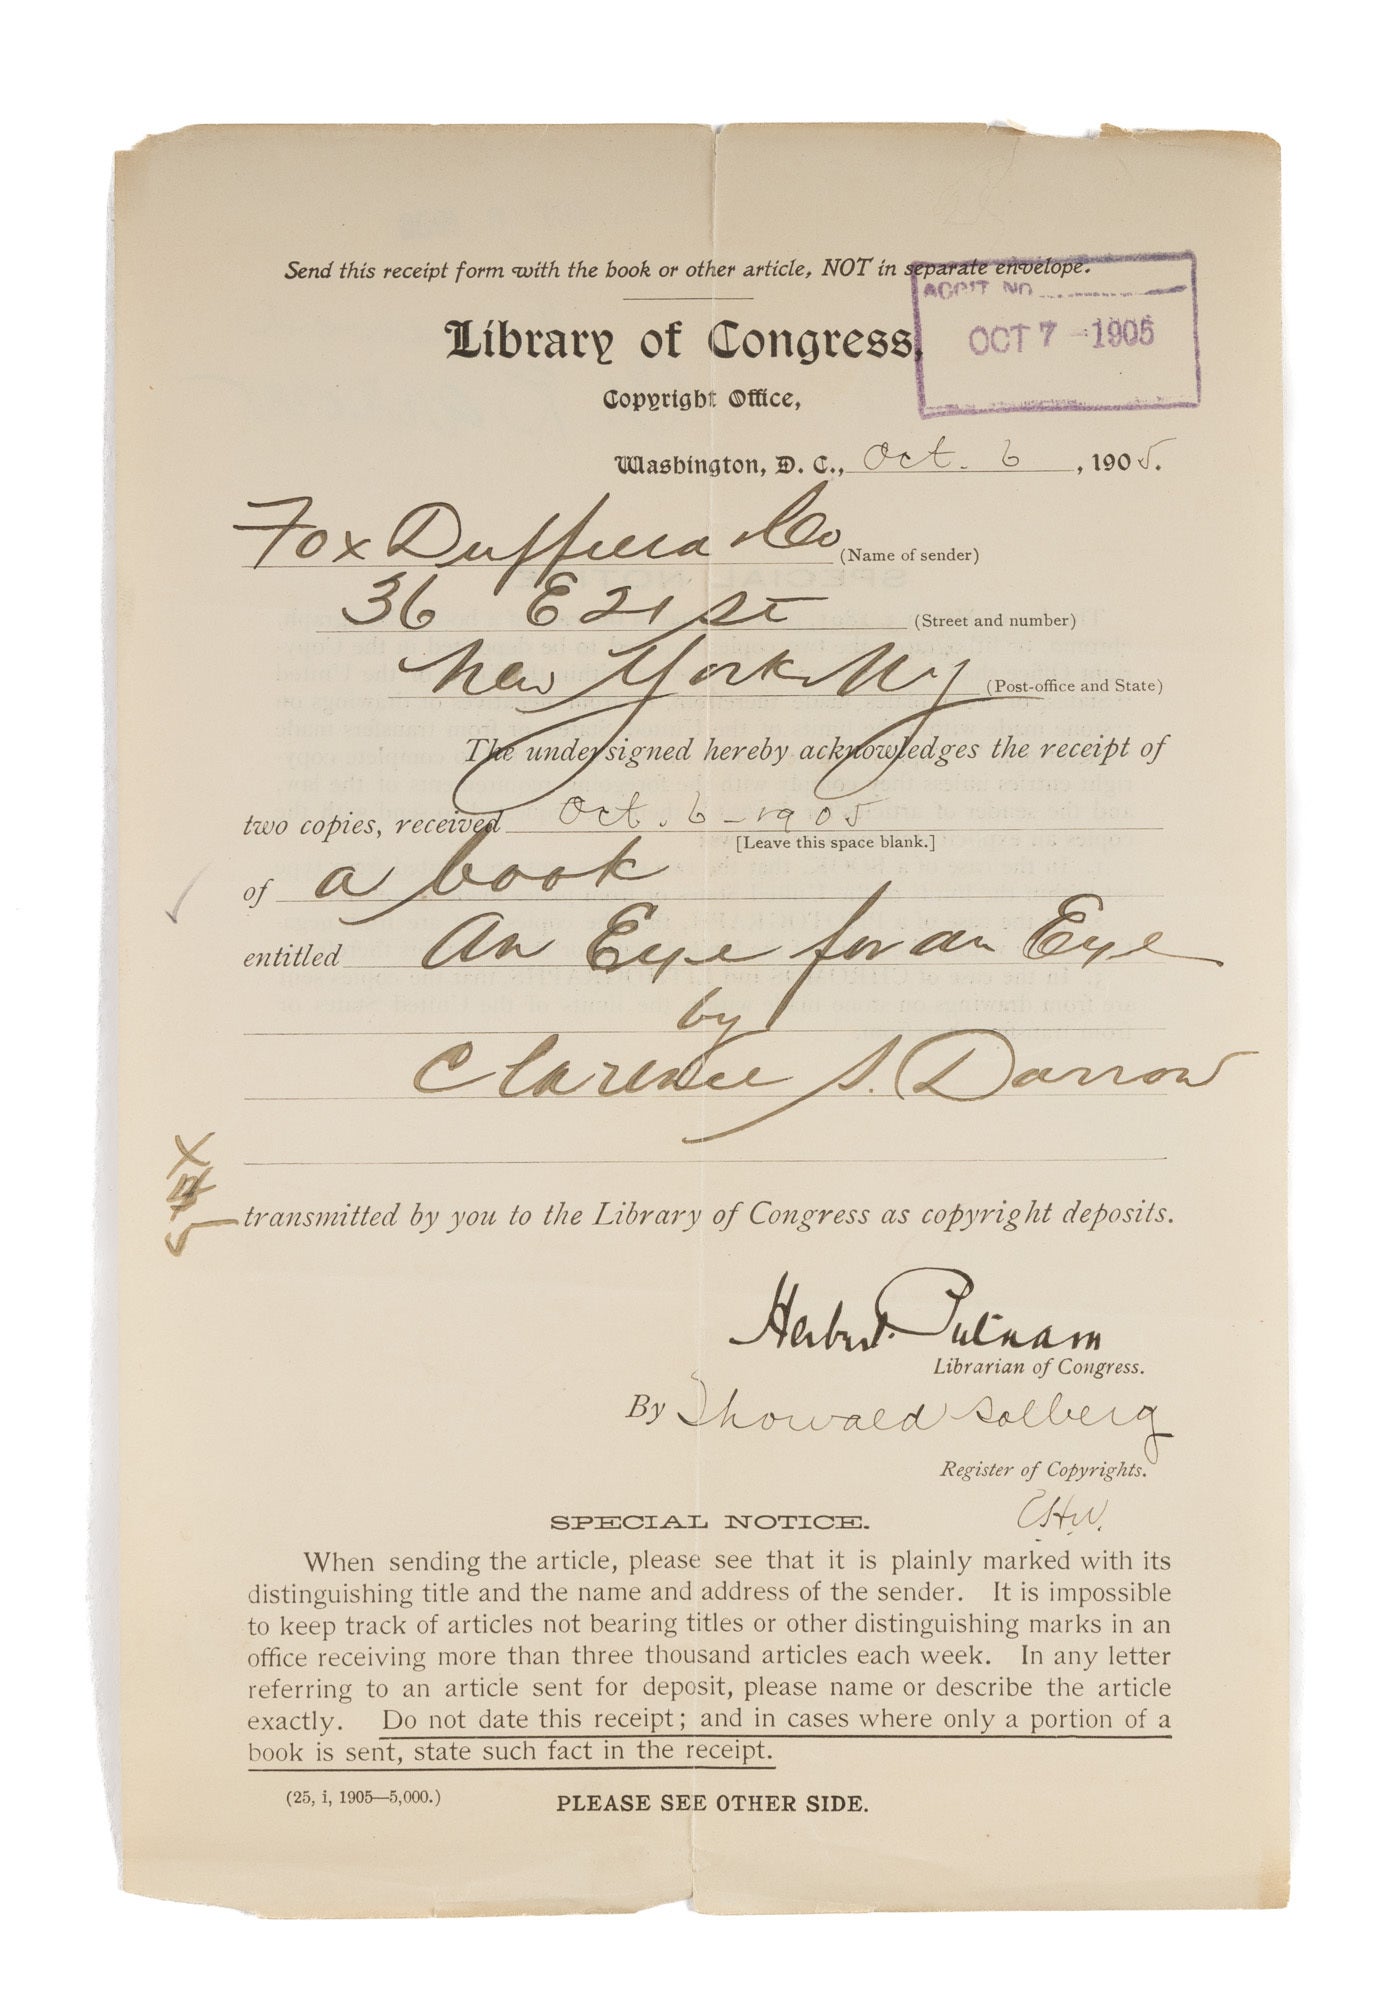 Send this receipt form with the book or other article, NOT in separate envelope.
ACC'T NO.
OCT 7 - 1905
Library of Congress,
Copyright Office,
Washington, D. C., Oct. 6, 1905.
Fox Duffield & Co
(Name of sender)
36 E 21 St
(Street and number)
New York NY
(Post-office and State)
The undersigned hereby acknowledges the receipt of
two copies, received Oct. 6 - 1905
[Leave this space blank.]
of a book
entitled An Eye for an Eye
by
Clarence S. Darrow
transmitted by you to the Library of Congress as copyright deposits.
Herbert Putnam
Librarian of Congress.
By Thorvald Solberg
Register of Copyrights.
SPECIAL NOTICE.
When sending the article, please see that it is plainly marked with its
distinguishing title and the name and address of the sender. It is impossible
to keep track of articles not bearing titles or other distinguishing marks in an
office receiving more than three thousand articles each week. In any letter
referring to an article sent for deposit, please name or describe the article
exactly. Do not date this receipt; and in cases where only a portion of a
book is sent, state such fact in the receipt.
(25, i, 1905—5,000.)
PLEASE SEE OTHER SIDE.